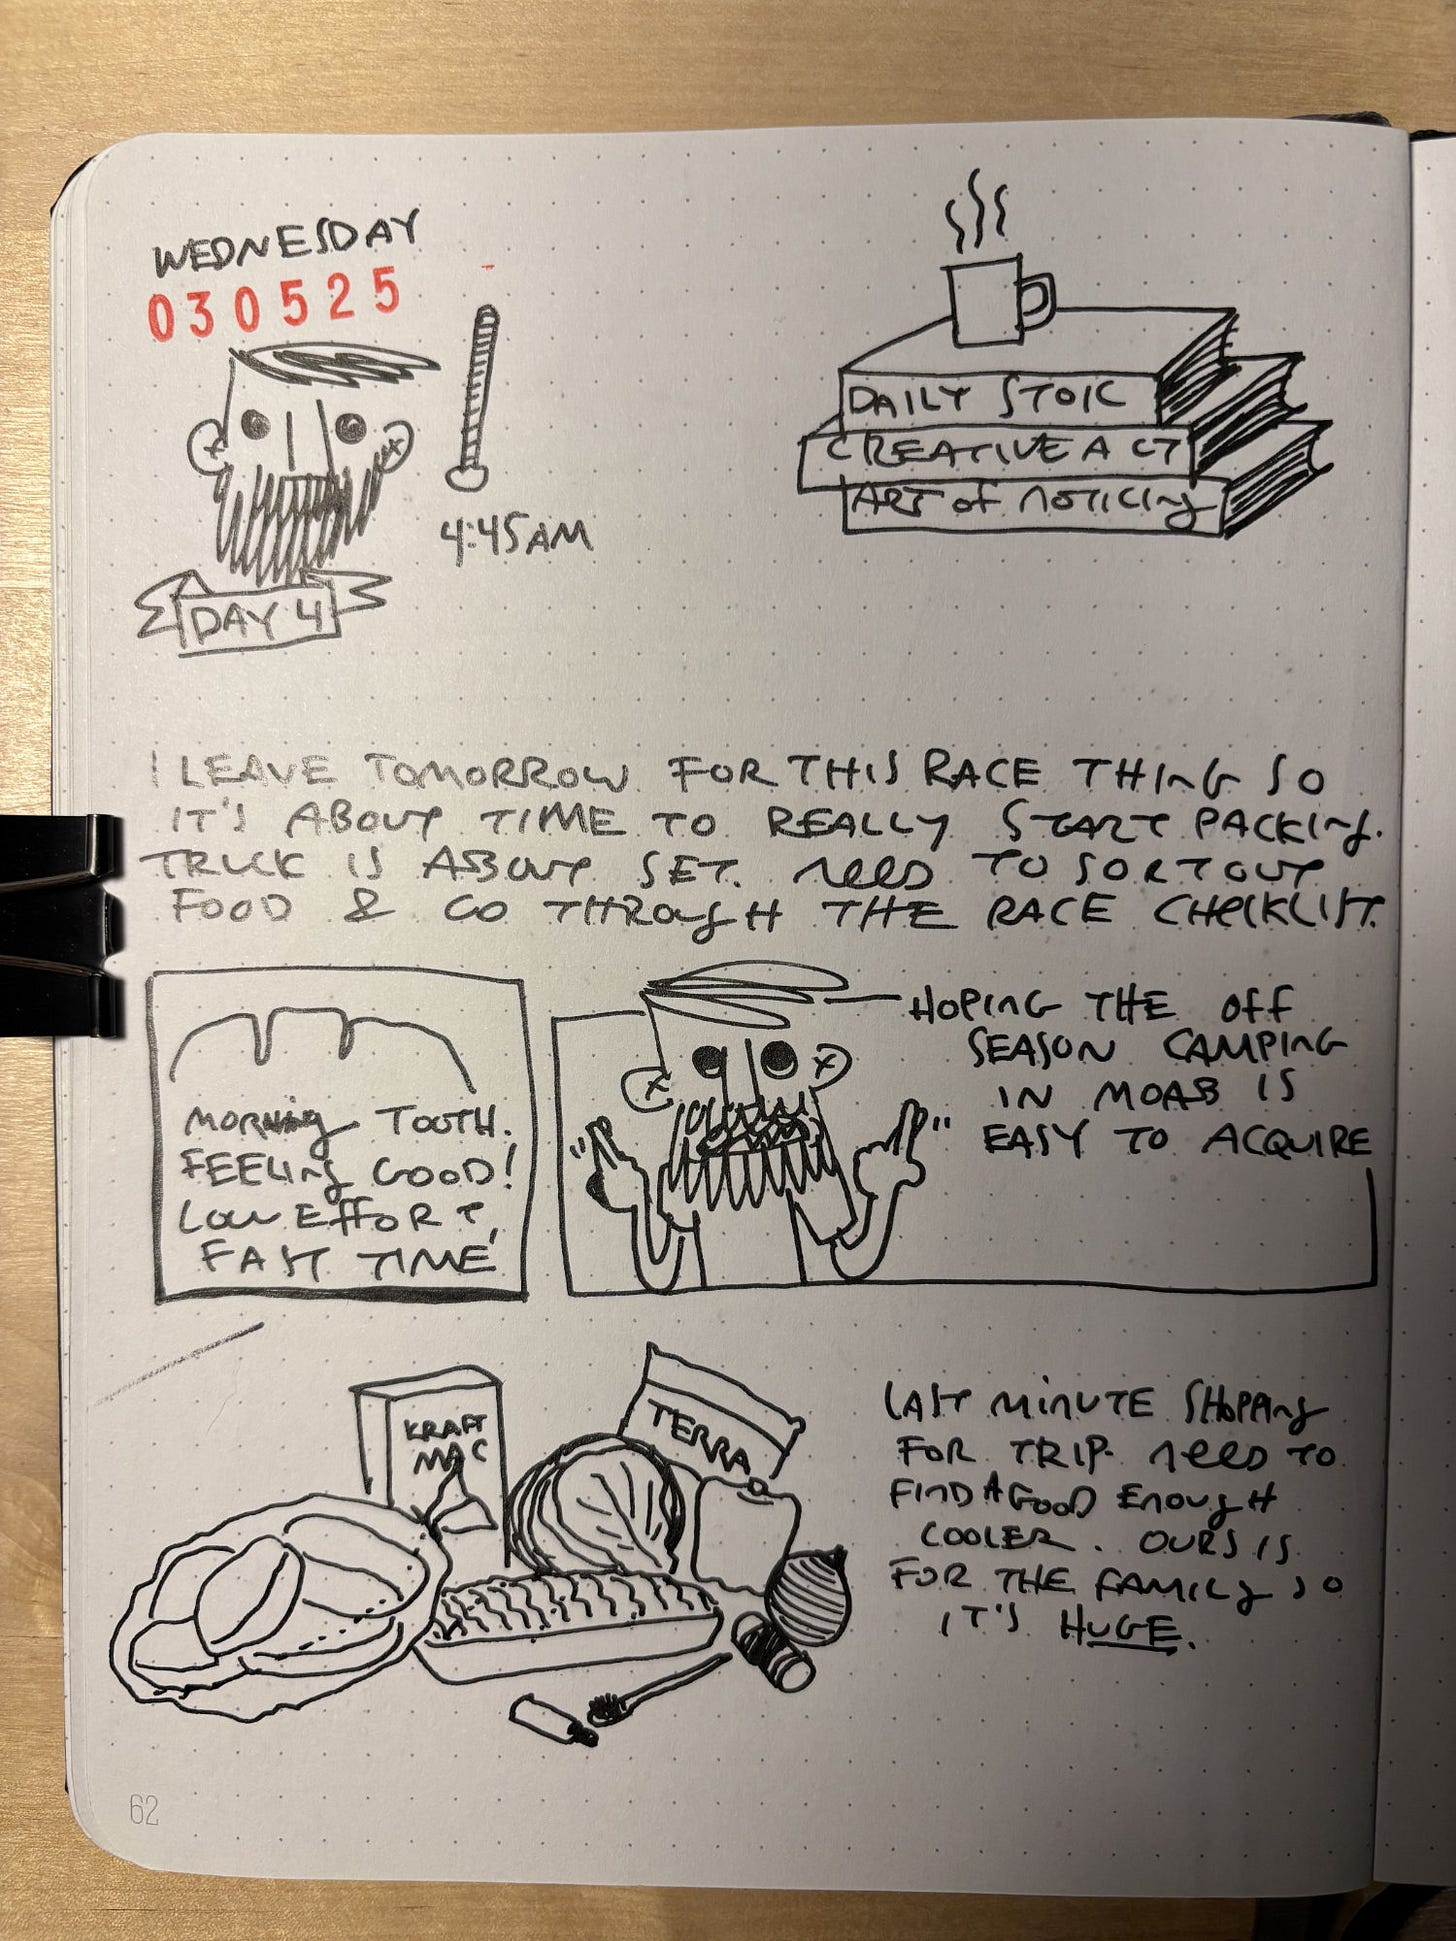 WEDNESDAY
030525
4:45AM
DAY 4
DAILY STOIC
CREATIVE ACT
ART OF NOTICING
I LEAVE TOMORROW FOR THIS RACE THING SO
IT'S ABOUT TIME TO REALLY START PACKING.
TRUCK IS ABOUT SET. NEED TO SORT OUT
FOOD & GO THROUGH THE RACE CHECKLIST.
MORNING TOOTH.
FEELING GOOD!
LOW EFFORT,
FAST TIME.
HOPING THE OFF
SEASON CAMPING
IN MOAB IS
EASY TO ACQUIRE
KRAFT
MAC
TERRA
LAST MINUTE SHOPPING
FOR TRIP. NEED TO
FIND A GOOD ENOUGH
COOLER. OURS IS
FOR THE FAMILY SO
IT'S HUGE.
62